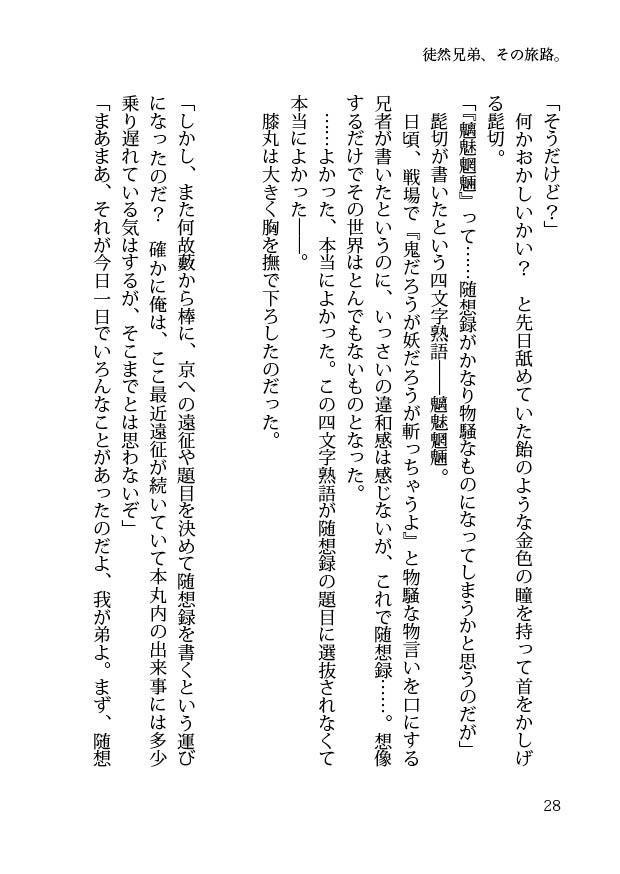 徒然兄弟、その旅路。
「そうだけど？」
何かおかしいかい？　と先日舐めていた飴のような金色の瞳を持って首をかしげ
る髭切。
「『魑魅魍魎』って……随想録がかなり物騒なものになってしまうかと思うのだが」
髭切が書いたという四文字熟語――魑魅魍魎。
日頃、戦場で『鬼だろうが妖だろうが斬っちゃうよ』と物騒な物言いを口にする
兄者が書いたというのに、いっさいの違和感は感じないが、これで随想録……。想像
するだけでその世界はとんでもないものとなった。
……よかった、本当によかった。この四文字熟語が随想録の題目に選抜されなくて
本当によかった――。
膝丸は大きく胸を撫で下ろしたのだった。
「しかし、また何故藪から棒に、京への遠征や題目を決めて随想録を書くという運び
になったのだ？　確かに俺は、ここ最近遠征が続いていて本丸内の出来事には多少
乗り遅れている気はするが、そこまでとは思わないぞ」
「まあまあ、それが今日一日でいろんなことがあったのだよ、我が弟よ。まず、随想
28